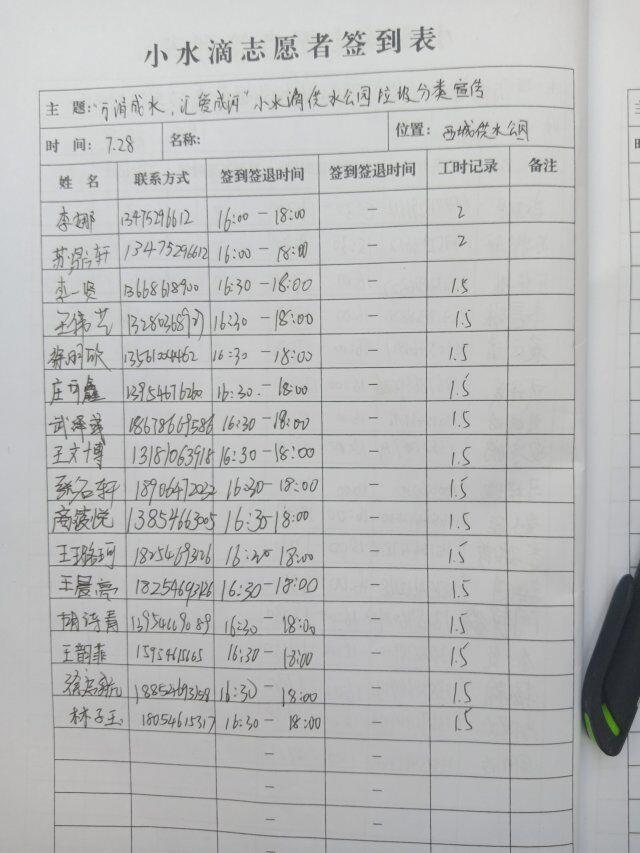 小水滴志愿者签到表
主 题: "万涓成水,汇爱成河" 小水滴供水公园垃圾分类宣传
时 间: 7.28 名称: 位置: 西城供水公园
姓 名 联系方式 签到签退时间 签到签退时间 工时记录 备注
李娜 13475296612 16:00-18:00 - 2
苏鼎轩 13475296612 16:00-18:00 - 2
李一贤 13668618900 16:30-18:00 - 1.5
16:30-18:00 - 1.5
13561004462 16:30-18:00 - 1.5
庄可鑫 13954676260 16:30-18:00 - 1.5
武泽 18678669586 16:30-18:00 - 1.5
王文博 13181063918 16:30-18:00 - 1.5
名轩 18906472022 16:30-18:00 - 1.5
商薇悦 13854663005 16:30-18:00 - 1.5
王珂 18254693126 18:00 - 1.5
王晨亮 18254693126 16:30-18:00 - 1.5
胡诗青 13954669089 16:30-18:00 - 1.5
王韵菲 15954615665 16:30-18:00 - 1.5
徐 18852693158 16:30-18:00 - 1.5
林子玉 18054615317 16:30-18:00 - 1.5
-
-
-